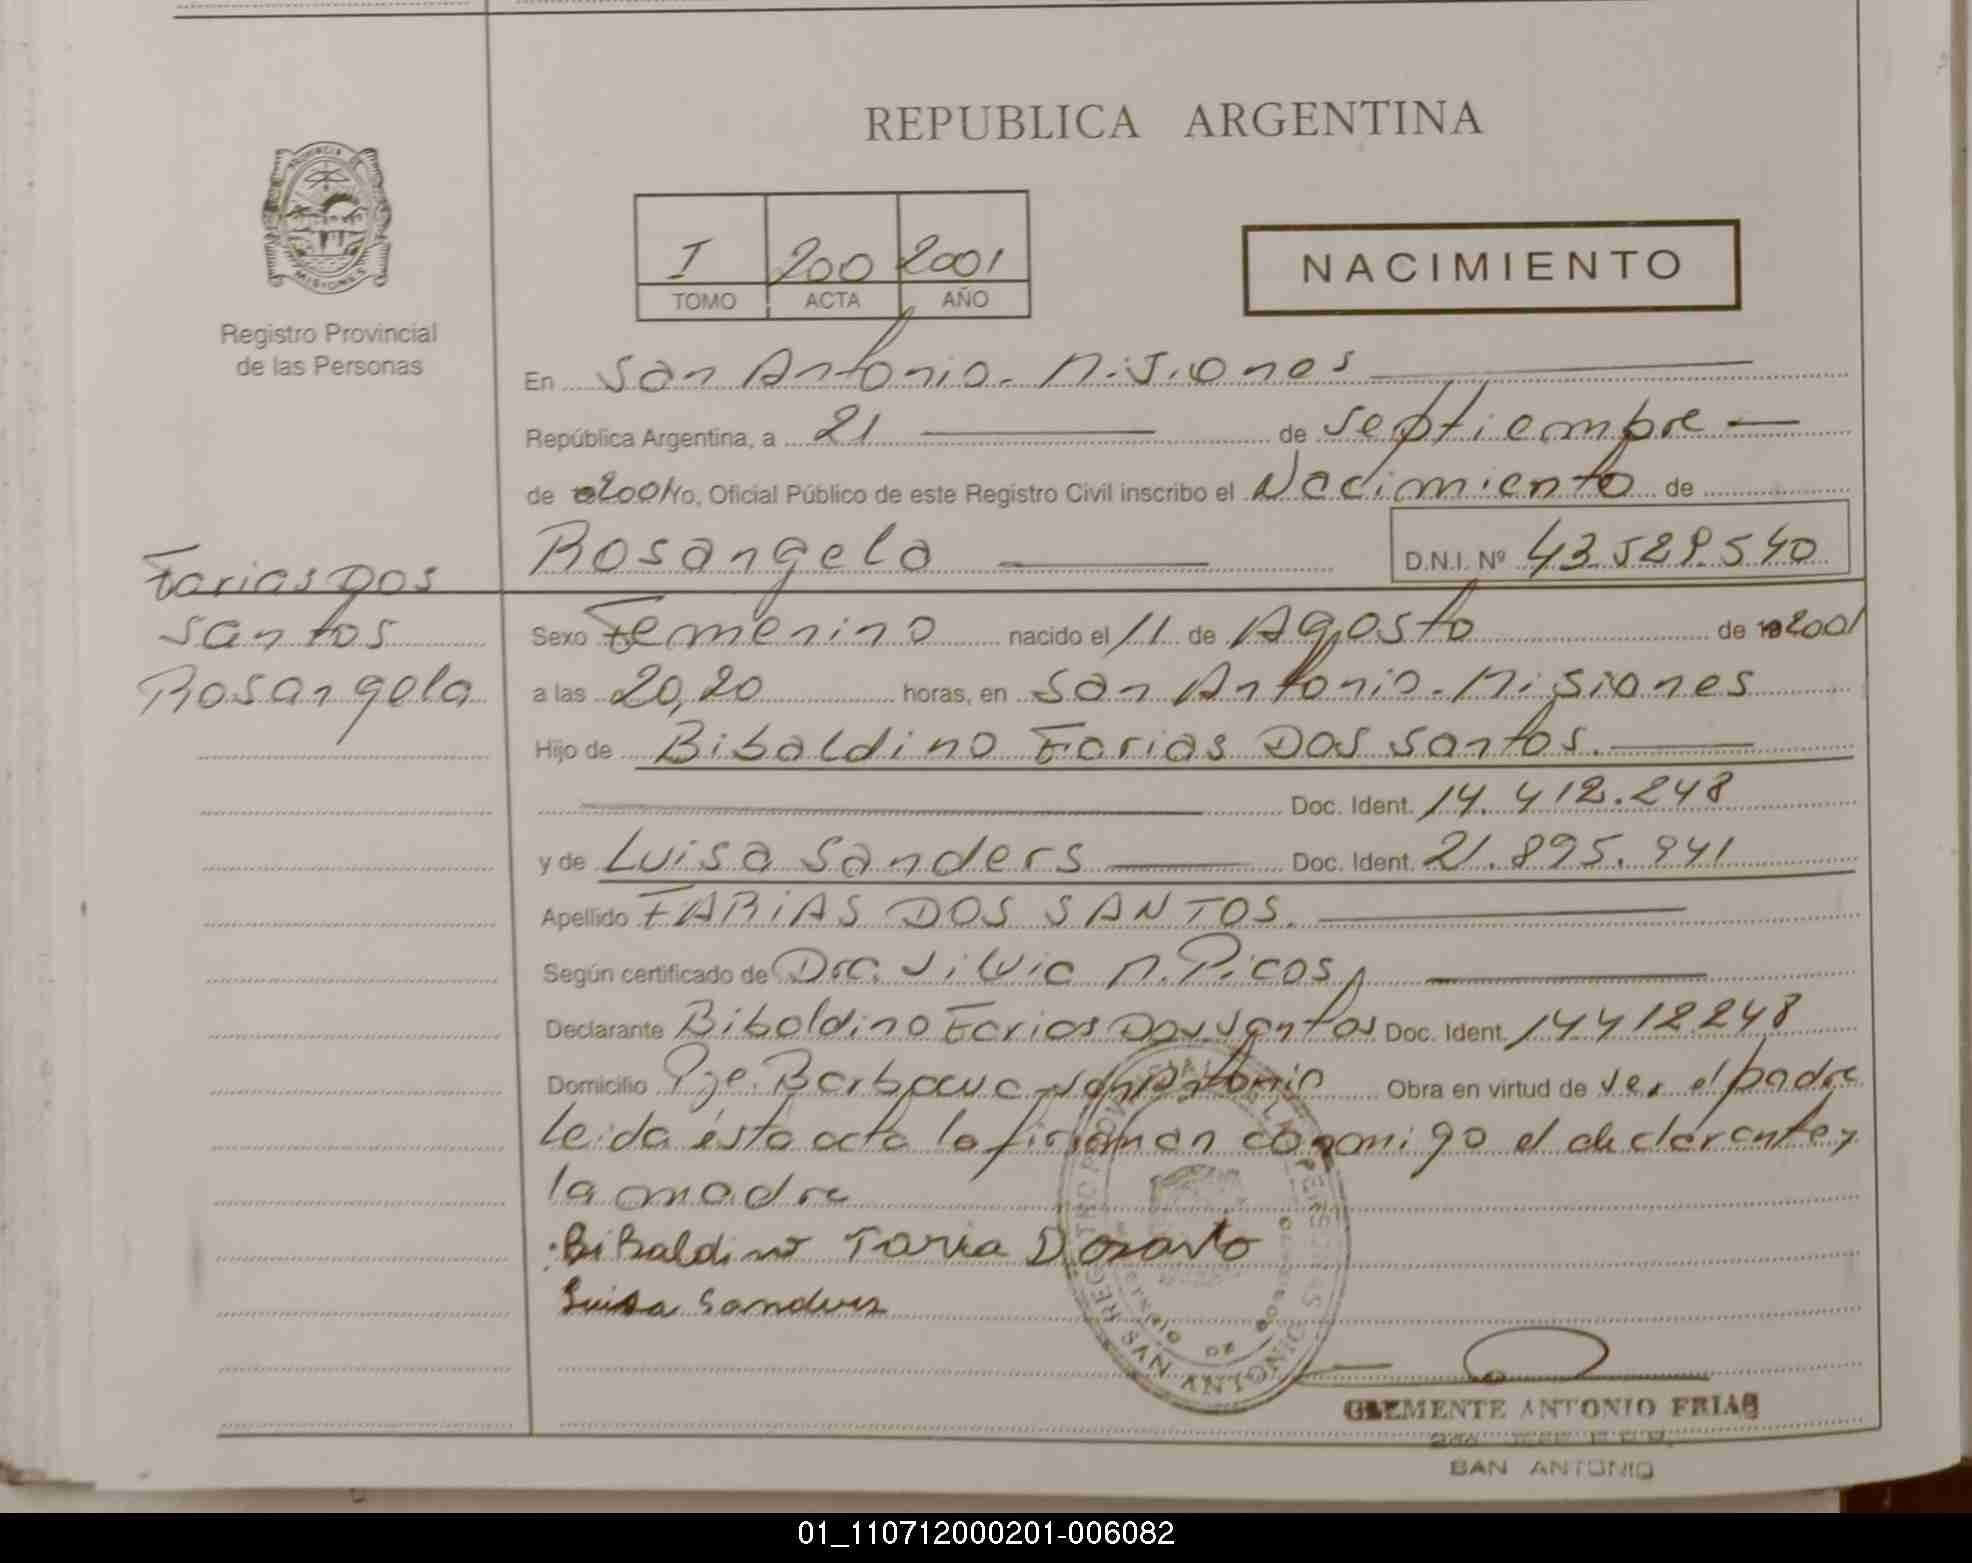 REPUBLICA ARGENTINA
PROVINCIA DE MISIONES
Registro Provincial
de las Personas
I 200 2001
TOMO ACTA AÑO
NACIMIENTO
En San Antonio - Misiones
República Argentina, a 21 de septiembre
de 2001 Yo, Oficial Público de este Registro Civil inscribo el Nacimiento de
Rosangela D.N.I. Nº 43.529.540
Farias Dos
Santos
Rosangela
Sexo Femenino nacido el 11 de Agosto de 2001
a las 20,20 horas, en San Antonio - Misiones
Hijo de Bibaldino Farias Dos Santos.
Doc. Ident. 14.412.248
y de Luisa Sanders Doc. Ident. 21.895.941
Apellido FARIAS DOS SANTOS.
Según certificado de Dra. Silvia M. Picos
Declarante Bibaldino Farias Dos Santos Doc. Ident. 14412248
Domicilio Pje. San Antonio Obra en virtud de ser el padre
Leida ésta acta la firman conmigo el declarante y
la madre
Bibaldino Faria Dosanto
Luisa Sanders
SAN ANTONIO
CLEMENTE ANTONIO FRIAS
SAN ANTONIO
01_110712000201-006082